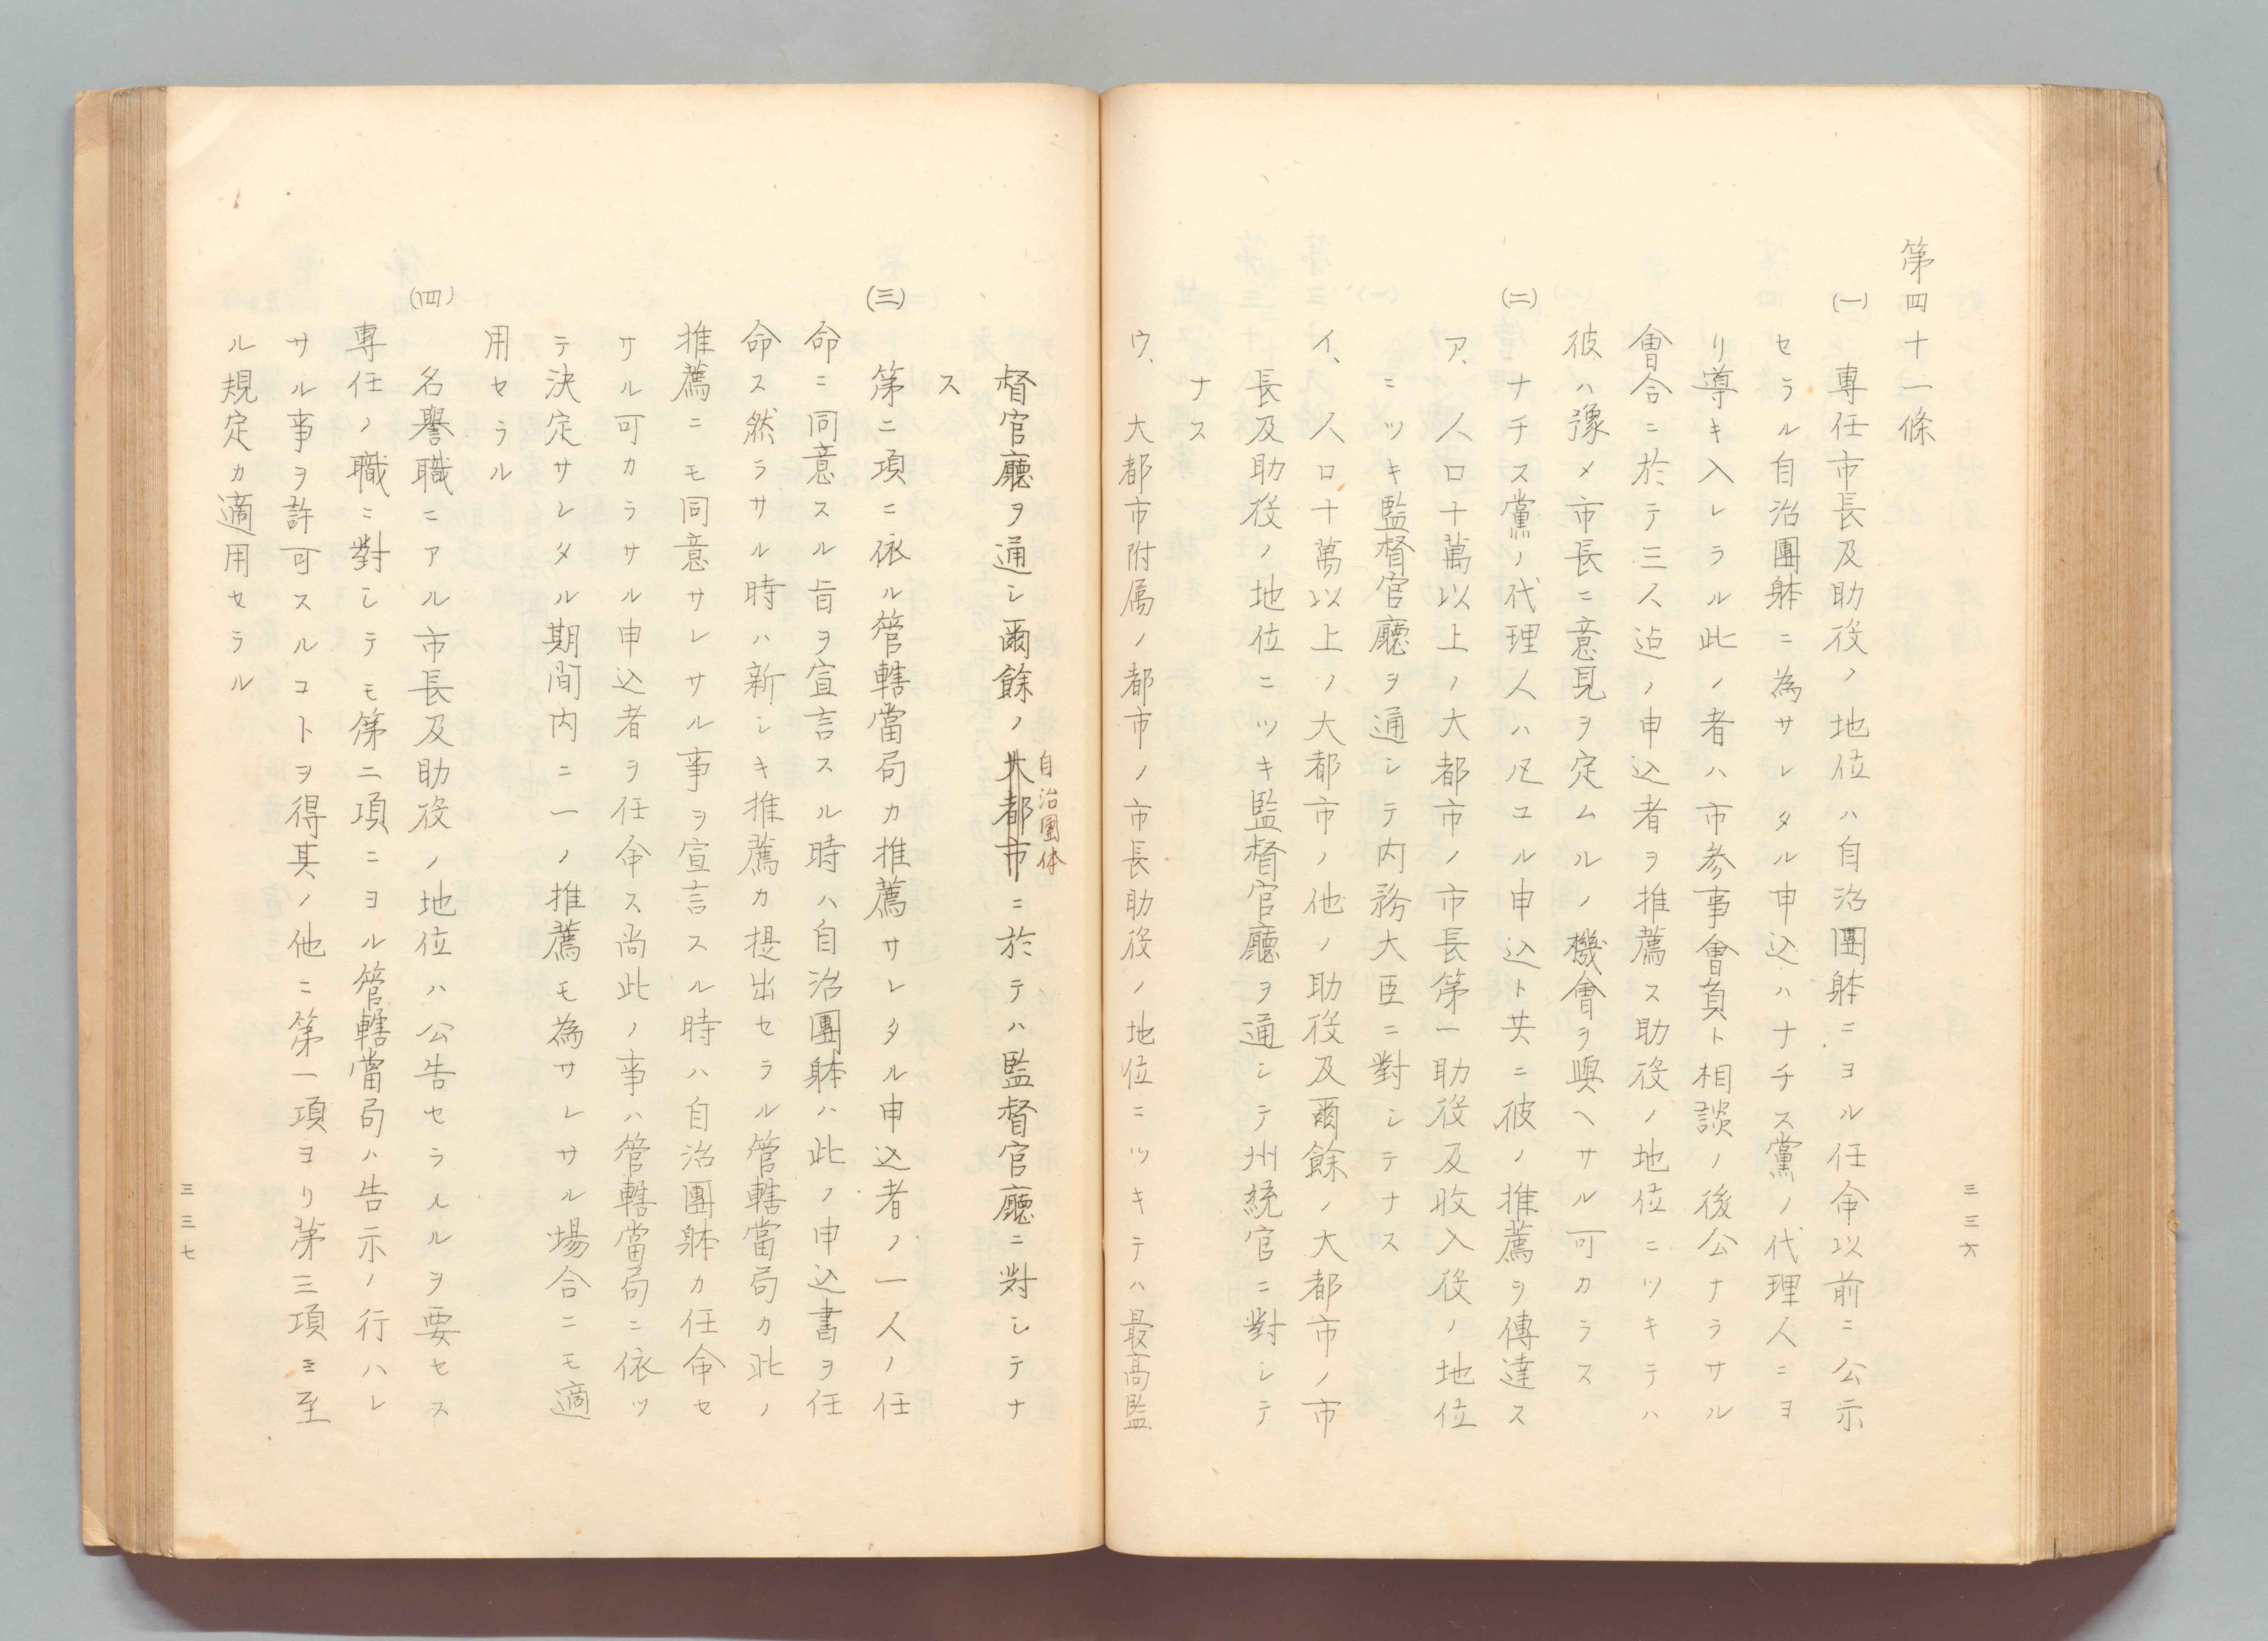 第四十一條
(一) 專任市長及助役ノ地位ハ自治團躰ニヨル任命以前ニ公示
セラル自治團躰ニ為サレタル申込ハナチス黨ノ代理人ニヨ
リ導キ入レラル此ノ者ハ市參事會員ト相談ノ後公ナラサル
會合ニ於テ三人迠ノ申込者ヲ推薦ス助役ノ地位ニツキテハ
彼ハ豫メ市長ニ意見ヲ定ムルノ機會ヲ與ヘサル可カラス
(二) ナチス黨ノ代理人ハ凡ユル申込ト共ニ彼ノ推薦ヲ傳達ス
ア、人口十萬以上ノ大都市ノ市長第一助役及收入役ノ地位
ニツキ監督官廳ヲ通シテ內務大臣ニ對シテナス
イ、人口十萬以上ノ大都市ノ他ノ助役及爾餘ノ大都市ノ市
長及助役ノ地位ニツキ監督官廳ヲ通シテ州統官ニ對シテ
ナス
ウ、大都市附属ノ都市ノ市長助役ノ地位ニツキテハ最高監
三三六
督官廳ヲ通シ爾餘ノ大都市ニ於テハ監督官廳ニ對シテナ
自治團体
ス
(三) 第二項ニ依ル管轄當局カ推薦サレタル申込者ノ一人ノ任
命ニ同意スル旨ヲ宣言スル時ハ自治團躰ハ此ノ申込書ヲ任
命ス然ラサル時ハ新シキ推薦カ提出セラル管轄當局カ此ノ
推薦ニモ同意サレサル事ヲ宣言スル時ハ自治團躰カ任命セ
サル可カラサル申込者ヲ任命ス尚此ノ事ハ管轄當局ニ依ツ
テ決定サレタル期間内ニ一ノ推薦モ為サレサル場合ニモ適
用セラル
(四) 名譽職ニアル市長及助役ノ地位ハ公告セラルルヲ要セス
專任ノ職ニ對シテモ第二項ニヨル管轄當局ハ告示ノ行ハレ
サル事ヲ許可スルコトヲ得其ノ他ニ第一項ヨリ第三項ニ至
ル規定カ適用セラル
三三七